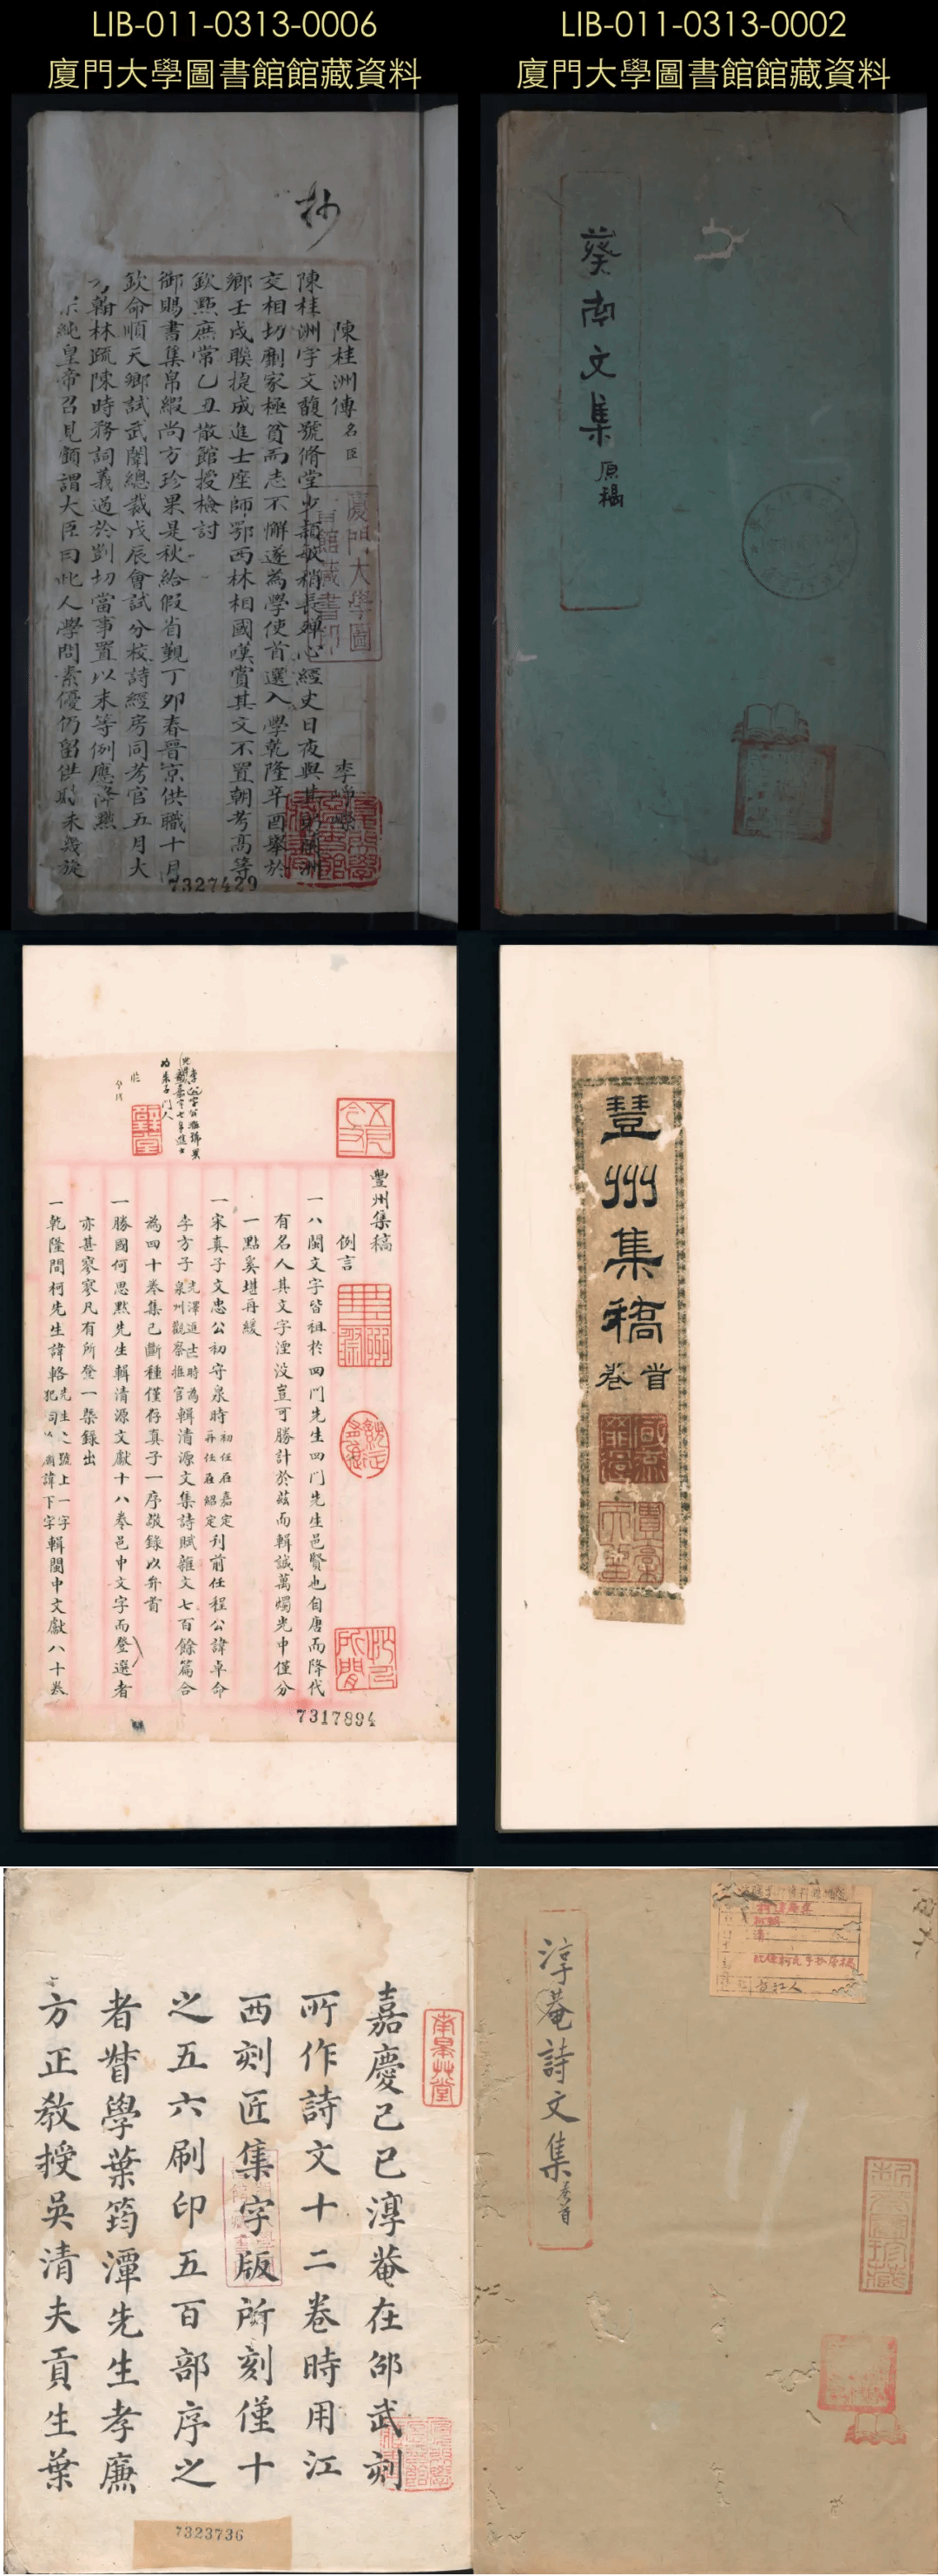 LIB-011-0313-0006
廈門大學圖書館館藏資料
LIB-011-0313-0002
廈門大學圖書館館藏資料
抄
陳桂洲傳 名臣
李
陳桂洲字文馥號脩堂少穎敏稍長殫心經史日夜與其弟 洲
交相切劘家極貧而志不懈遂為學使首選入學乾隆辛酉舉於
鄉壬戌聯捷成進士座師鄂西林相國嘆賞其文不置朝考高等
欽點庶常乙丑散館授檢討
御賜書集帛緞尚方珍果是秋給假省覲丁卯春晉京供職十月
欽命順天鄉試武闈總裁戊辰會試分校詩經房同考官五月大
考翰林疏陳時務詞義過於剴切當事置以末等例應降黜
純皇帝召見顧謂大臣曰此人學問素優仍留供職未幾旋
7327429
葵南文集 原稿
豐州集稿
例言
一八閩文字皆祖於四門先生四門先生邑賢也自唐而降代
有名人其文字湮沒豈可勝計於茲而輯誠萬燭光中僅分
一點奚堪再緩
一宋真子文忠公初守泉時 初任在嘉定 再任在紹定 刋前任程公諱卓命
李方子 光澤進士時為 泉州觀察推官 輯清源文集詩賦雜文七百餘篇合
為四十卷集已斷種僅存真子一序敬錄以弁首
一勝國何思默先生輯清源文獻十八卷邑中文字而登選者
亦甚寥寥凡有所登一槩錄出
一乾隆間柯先生諱輅 先生之號上一字 犯 諱下字 輯閩中文獻八十卷
7317894
豐州集稿
卷首
嘉慶己巳淳菴在邵武刻
所作詩文十二卷時用江
西刻匠集字版所刻僅十
之五六刷印五百部序之
者督學葉筠潭先生孝廉
方正教授吳清夫貢生葉
南皐艸堂
7323736
淳菴詩文集 卷首